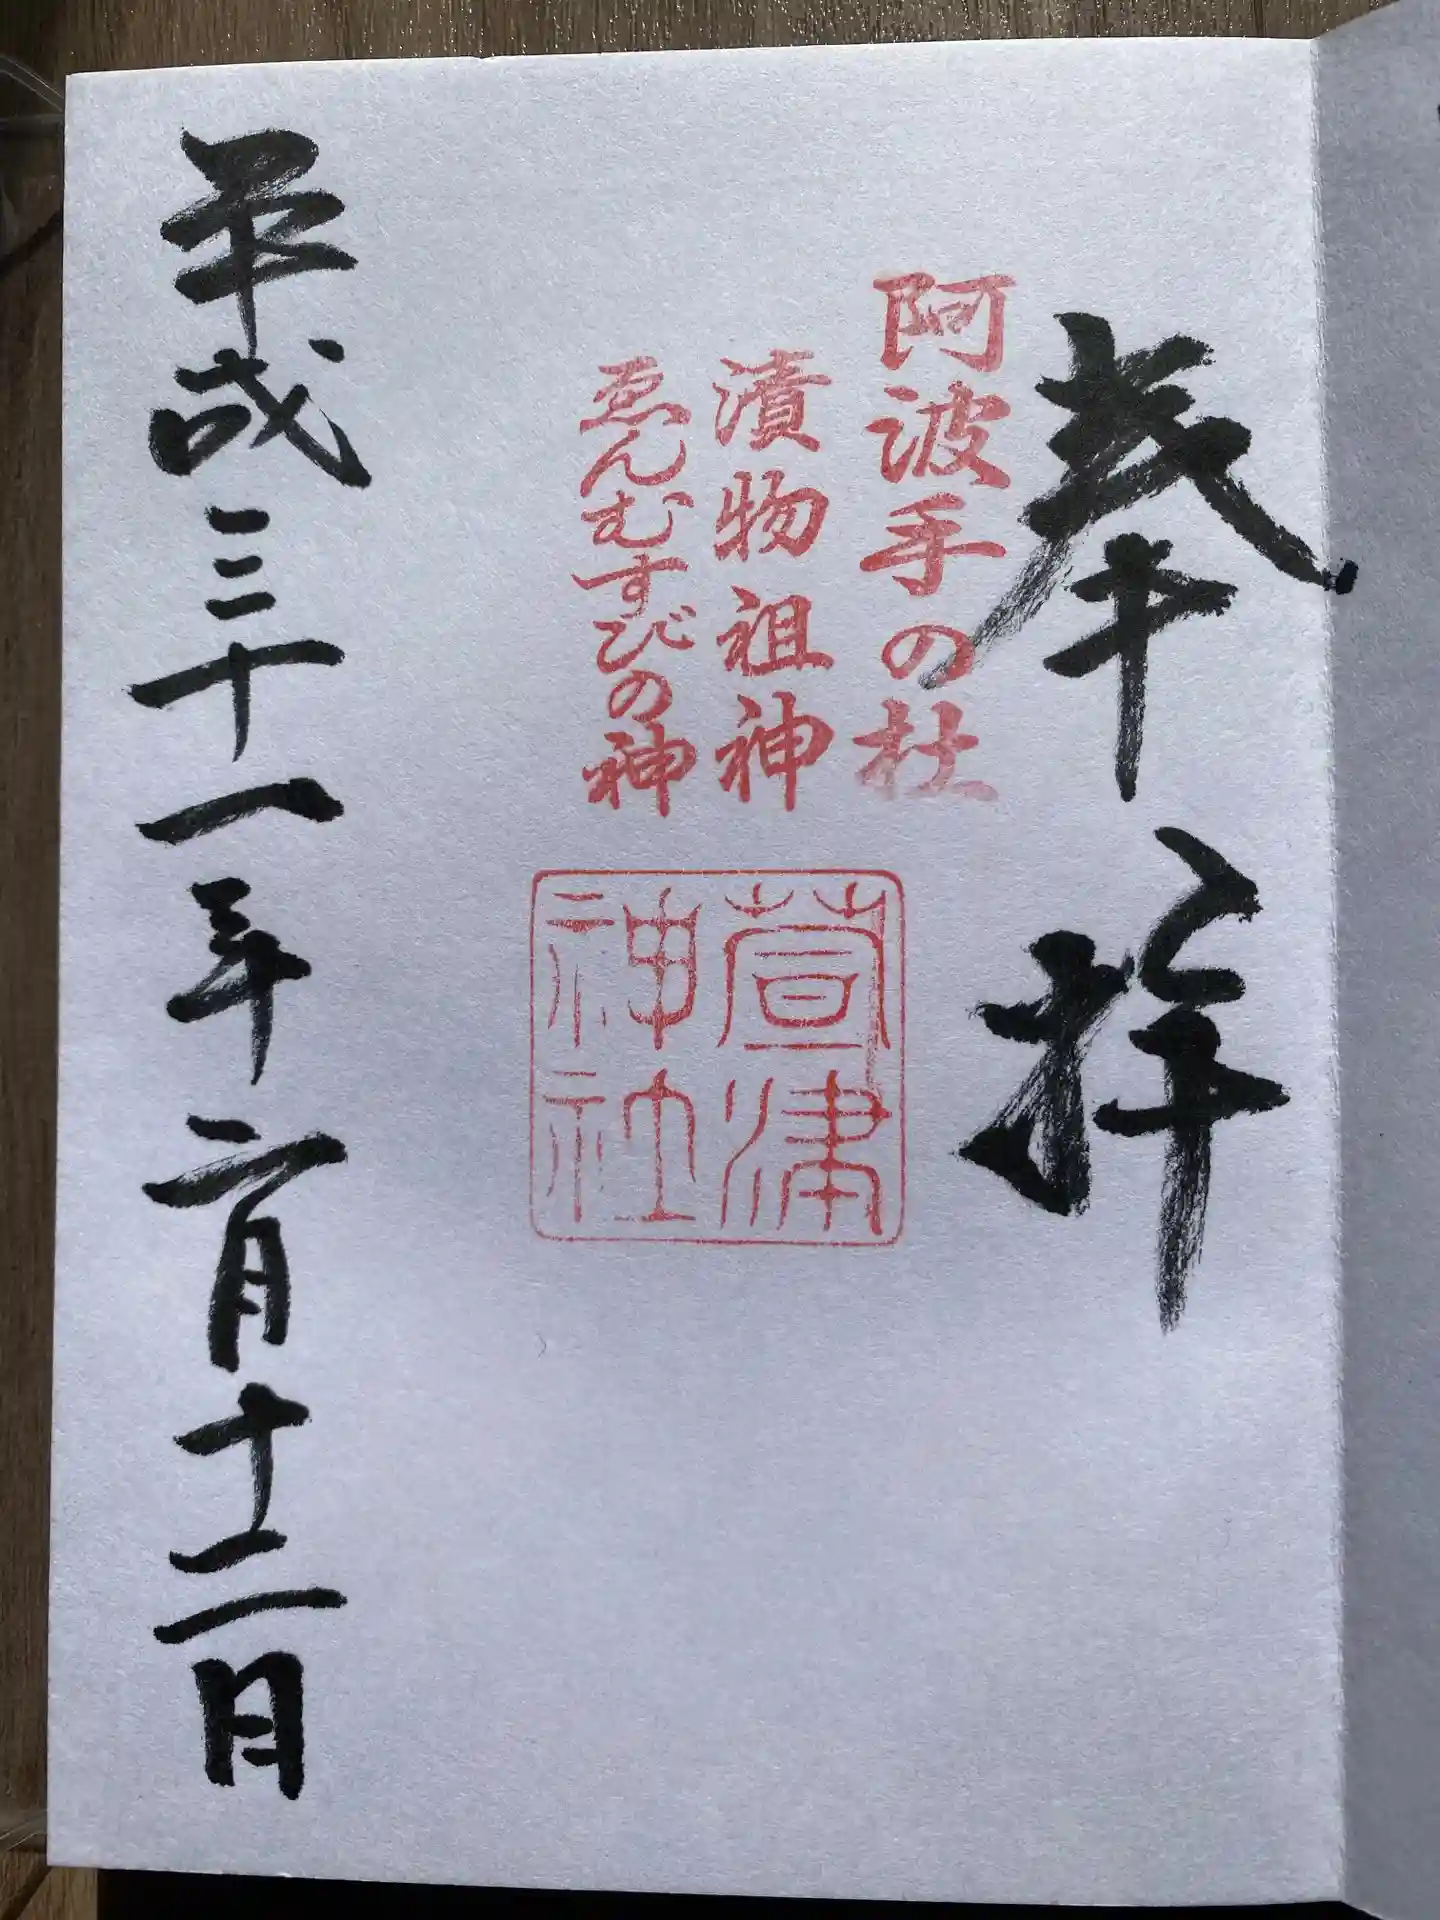 奉拝
阿波手の杜
漬物祖神
ゑんむすびの神
萱津
神社
平成三十一年二月十二日